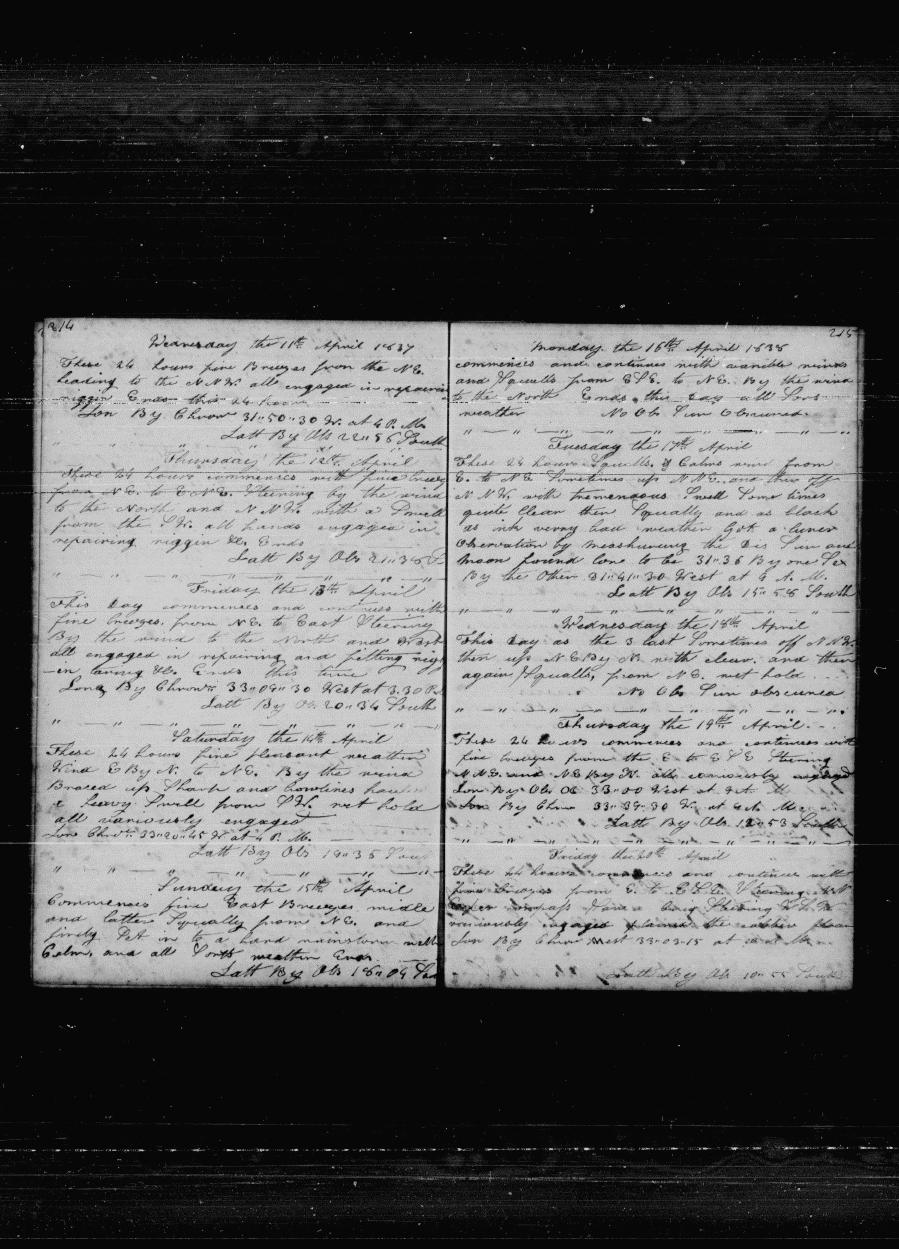 214
Wednesday the 11th April 1837
These 24 hours fine Breezes from the NE.
Leading to the NNW. all engaged in repairing
riggin Ends this 24 hours
Lon By Chron 31"50"30 W. at 4 P. M.
Latt By Obs 22"56 South
Thursday the 12th April
These 24 hours commences with fine breezes
from NE. to ENE. Steering by the wind
to the North and NNW. with a Swell
from the SW. all hands engaged in
repairing riggin &c. Ends
Latt By Obs 21"35 S
Friday the 13th April
This Day commences and continues with
fine breezes from NE. to East Steering
By the wind to the North and
all engaged in repairing and fitting rigg
-in &c. Ends this time
Long By Chronr 33"09"30 West at 3.30 P.
Latt By Ob. 20"34 South
Saturday the 14th April
These 24 hours fine pleasant weather
Wind E By N. to NE. By the wind
Braced up Sharp and bowlines
a heavy Swell from SW. net hold
all variously engaged
Lon Chronr 33"20"45 W at 4 P. M.
Latt By Obs 19"35 Sou
Sunday the 15th April
Commences fine East Breezes middle
and latter Squally from NE. and
firely Put in to a hard rainstorm with
Calm, and all Sorts weather Ends
Latt By Obs 18"09 Sou
215
Monday the 16th April 1838
commences and continues with variable winds
and Squalls from ESE. to NE. By the wind
to the North Ends this day all Sors
weather No Ob Sun Obscured.
Tuesday the 17th April
These 24 hours Squalls & Calms wind from
E. to NE Sometimes up NNE. and then off
NNW. with tremendous Swell Some times
quite Clear then Squally and as black
as ink verry bad weather Got a luner
Observation by meashureing the Dis Sun and
Moon found Lone to be 31"36 By one Sex
By the Other 31"41"30 West at 9 A. M.
Latt By Obs 15"58 South
Wednesday the 18th April
This Day as the 3 last Sometimes off NNW.
then up NE By N. with clear. and then
again Squalls, from NE. net hold
No Ob Sun obscured
Thursday the 19th April
These 24 hours commences and continues with
fine breezes from the E to ESE Steering
NNE. and NE By N. all variously engaged
Lon By Obs 33"00 West at 9 A. M
Lon By Chron 33"39"30 W. at 9 A. M.
Latt By Obs 12"53 South
Friday the 20th April
These 24 hours commences and continues with
fine Breezes from E. to ESE. Steering
variously engaged the weather pleasan
Lon By Chron West 33"03"15 at
Latt By Obs 10"55 South